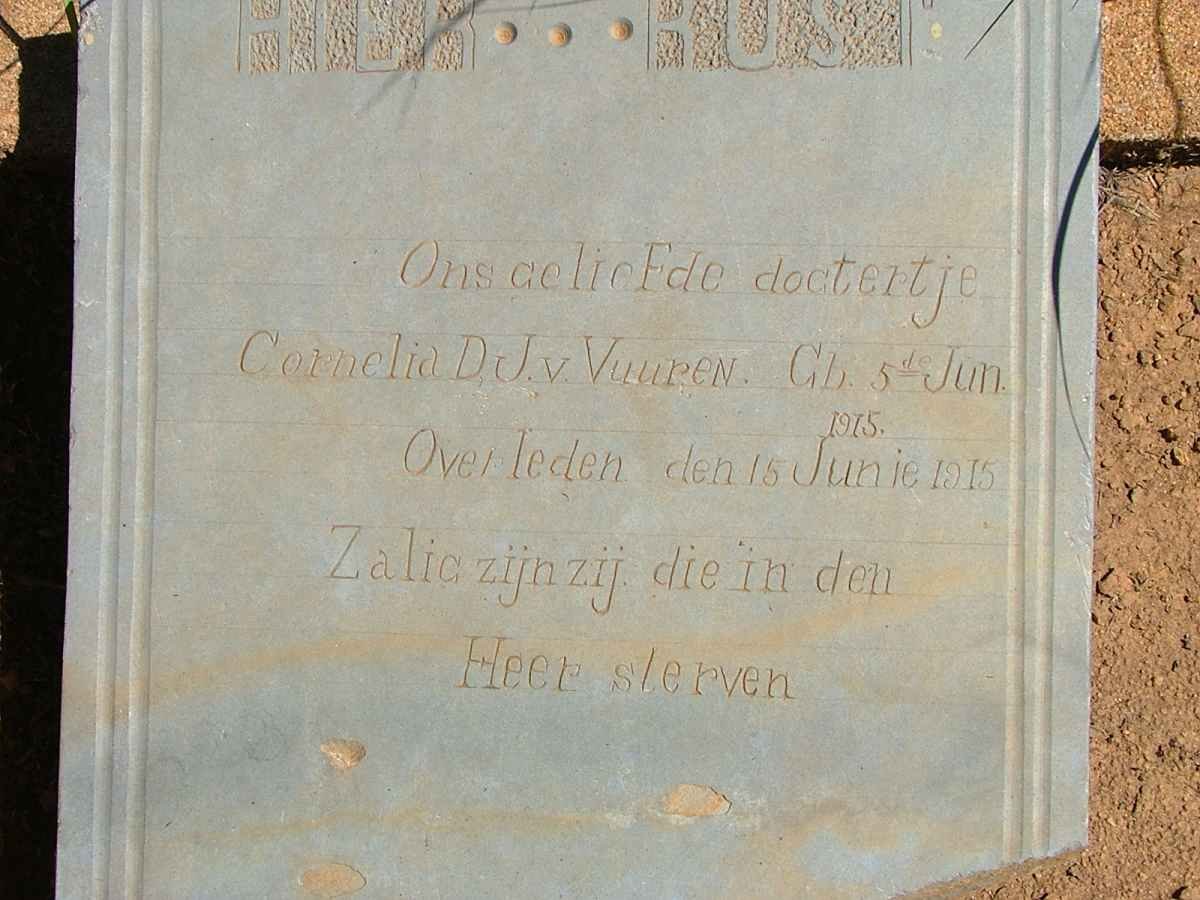 HIER ... RUST
Ons geliefde doctertje
Cornelia D. J. v. Vuuren. Gb. 5de Jun.
1915.
Overleden den 15 Junie 1915
Zalig zijn zij die in den
Heer sterven